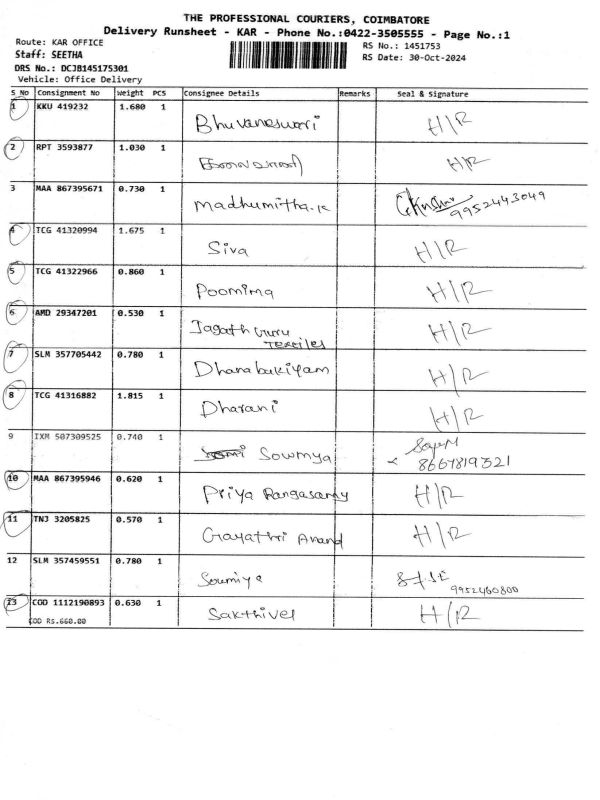 THE PROFESSIONAL COURIERS, COIMBATORE
Delivery Runsheet - KAR - Phone No.:0422-3505555 - Page No.:1
Route: KAR OFFICE
RS No.: 1451753
Staff: SEETHA
RS Date: 30-Oct-2024
DRS No.: DCJB145175301
Vehicle: Office Delivery
S No Consignment No Weight PCS Consignee Details Remarks Seal & Signature
1 KKU 419232 1.680 1 Bhuvaneswari H/R
2 RPT 3593877 1.030 1 H/R
3 MAA 867395671 0.730 1 Madhumitha.K 9952443049
4 TCG 41320994 1.675 1 Siva H/R
5 TCG 41322966 0.860 1 Poornima H/R
6 AMD 29347201 0.530 1 Jagath Guru Textiles H/R
7 SLM 357705442 0.780 1 Dhanabakiyam H/R
8 TCG 41316882 1.815 1 Dharani H/R
9 IXM 507309525 0.740 1 Sowmya 8667819321
10 MAA 867395946 0.620 1 Priya Rangasamy H/R
11 TNJ 3205825 0.570 1 Gayathri Anand H/R
12 SLM 357459551 0.780 1 Soumiya 9952460800
13 COD 1112190893 0.630 1 Sakthivel H/R
COD Rs.660.00